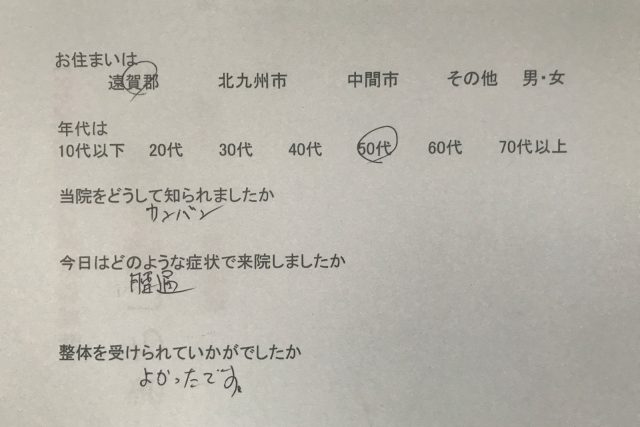 お住まいは
遠賀郡 北九州市 中間市 その他 男・女
年代は
10代以下 20代 30代 40代 50代 60代 70代以上
当院をどうして知られましたか
カンバン
今日はどのような症状で来院しましたか
腰痛
整体を受けられていかがでしたか
よかったです。